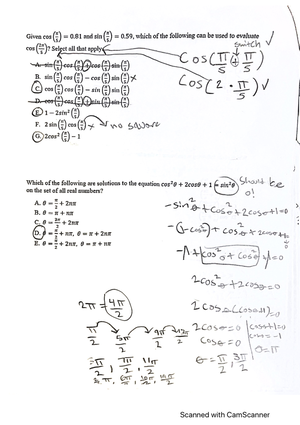 Given cos(π/5) = 0.81 and sin(π/5) = 0.59, which of the following can be used to evaluate
cos(2π/5)? Select all that apply.
switch
A. sin(π/5)cos(π/5) + cos(π/5)sin(π/5)
B. sin(π/5)cos(π/5) − cos(π/5)sin(π/5) ×
C. cos(π/5)cos(π/5) − sin(π/5)sin(π/5)
D. cos(π/5)cos(π/5) + sin(π/5)sin(π/5)
E. 1 − 2sin²(π/5)
F. 2 sin(π/5)cos(π/5) × → no square
G. 2cos²(π/5) − 1
Cos(π/5 + π/5)
Cos(2 · π/5) ✓
Which of the following are solutions to the equation cos²θ + 2cosθ + 1 = sin²θ
on the set of all real numbers?
should be
0!
A. θ = π/2 + 2πn
B. θ = π + πn
C. θ = 3π/2 + 2πn
D. θ = π/2 + πn, θ = π + 2πn
E. θ = π/2 + 2πn, θ = π + πn
-sin²θ + cos²θ + 2cosθ + 1 = 0
-(1-cos²θ) + cos²θ + 2cosθ
-1 + cos²θ + cos²θ + 1 = 0
2cos²θ + 2cosθ = 0
2cosθ(cosθ+1) = 0
2cosθ = 0
cosθ + 1 = 0
cosθ = 0
cos = -1
θ = π
θ = π/2, 3π/2
2π = 4π/2
π/2 5π/2 9π/2 13π/2
3π/2, 7π/2, 11π/2
Scanned with CamScanner